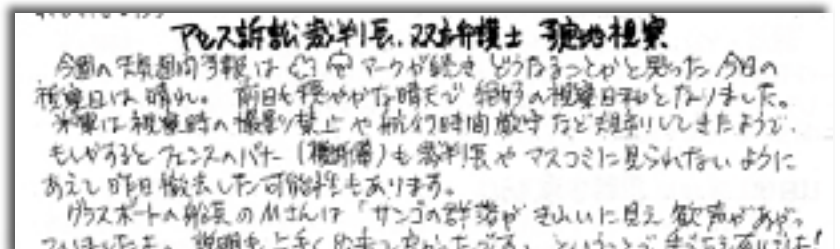 アセス訴訟裁判長、双方弁護士 現地視察
今週の天気週間予報は マークが続き どうなることかと思った 今日の
視察日は 晴れ。 前日も穏やかな晴天で 絶好の視察日和となりました。
米軍は視察時の撮影禁止や航行時間厳守など規制してきたようで、
もしかするとフェンスのバナー(横断幕)も裁判長やマスコミに見られないように
あえて昨日撤去した可能性もあります。
グラスボートの船長のMさんは「サンゴの群落がきれいに見え歓声があがっ
ていましたよ。説明も上手く出来て良かったです」ということで